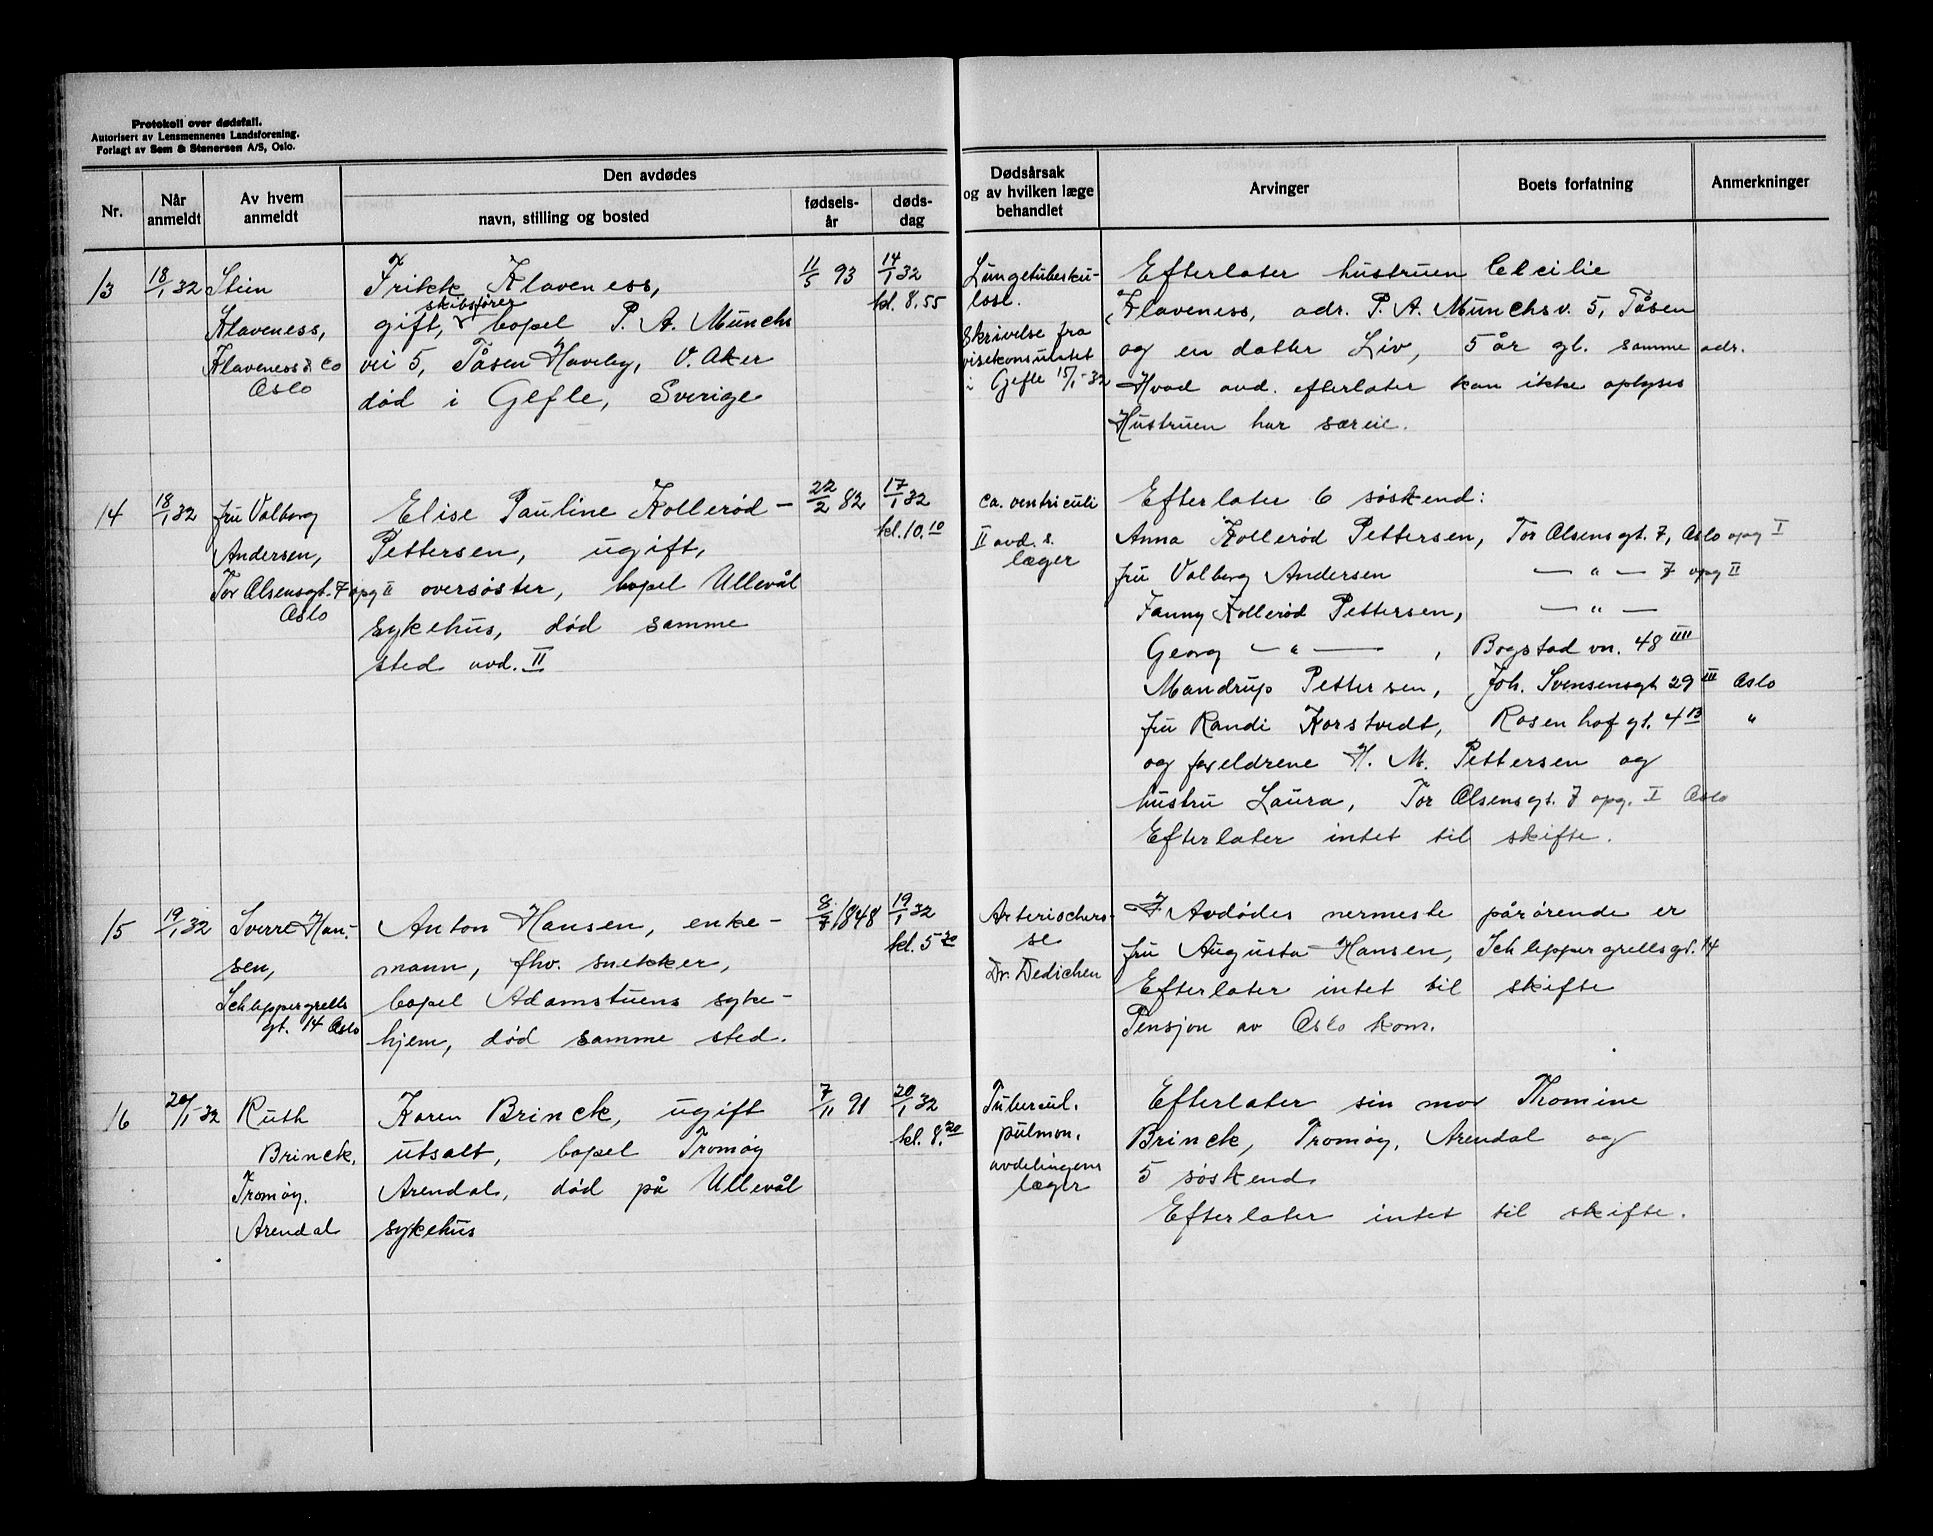 Protokoll over dødsfall.
Autorisert av Lensmennenes Landsforening.
Forlagt av Sem & Stenersen A/S, Oslo.
Nr.
Når anmeldt
Av hvem anmeldt
Den avdødes
navn, stilling og bosted
fødsels-år
døds-dag
Dødsårsak og av hvilken læge behandlet
Arvinger
Boets forfatning
Anmerkninger
13
18/1 32
Stein
Klaveness,
Klaveness & Co
Oslo
Frikk Klaveness,
skibsfører
gift, bopel P. A. Munchs
vei 5, Tåsen Haveby, V. Aker
død i Gefle, Sverige
11/5 93
14/1 32
kl. 8.55
Lungetuberku-
lose.
Skrivelse fra
visekonsulatet
i Gefle 15/1-32
Efterlater hustruen Cecilie
Klaveness, adr. P. A. Munchsv. 5, Tåsen
og en datter Liv, 5 år gl. samme adr.
Hvad avd. efterlater kan ikke oplyses
Hustruen har særeie.
14
18/1 32
fru Valborg
Andersen,
Tor Olsensgt. 7 opg II
Oslo
Elise Pauline Kollerød-
Pettersen, ugift,
oversøster, bopel Ullevål
sykehus, død samme
sted avd. II
22/2 82
17/1 32
kl. 10.10
Ca. ventriculi
II avd. s.
læger
Efterlater 6 søskend:
Anna Kollerød Pettersen, Tor Olsensgt. 7, Oslo opg I
fru Valborg Andersen — " — 7 opg II
Fanny Kollerød Pettersen, — " —
Georg — " — , Bogstad vn. 48 IIII
Mandrup Pettersen, Joh. Svensensgt 29 III Oslo
fru Randi Korstvedt, Rosenhofgt. 4 13 "
og foreldrene H. M. Pettersen og
hustru Laura, Tor Olsensgt. 7 opg. I Oslo
Efterlater intet til skifte.
15
19/1 32
Sverre Han-
sen,
Schleppergrells
gt. 14 Oslo
Anton Hansen, enke-
mann, fhv. snekker,
bopel Adamstuens syke-
hjem, død samme sted.
8/7 1848
19/1 32
kl. 5 20
Arteriochero-
se
Dr. Dedichen
Avdødes nermeste pårørende er
fru Augusta Hansen, Schleppergrellsgt. 14
Efterlater intet til skifte
Pensjon av Oslo kom.
16
20/1 32
Ruth
Brinck,
Tromøy.
Arendal
Karen Brinck, ugift
utsalt, bopel Tromøy
Arendal, død på Ullevål
sykehus
7/11 91
20/1 32
kl. 8.20
Tubercul.
pulmon.
avdelingens
læger
Efterlater sin mor Thomine
Brinck, Tromøy, Arendal og
5 søskend
Efterlater intet til skifte.